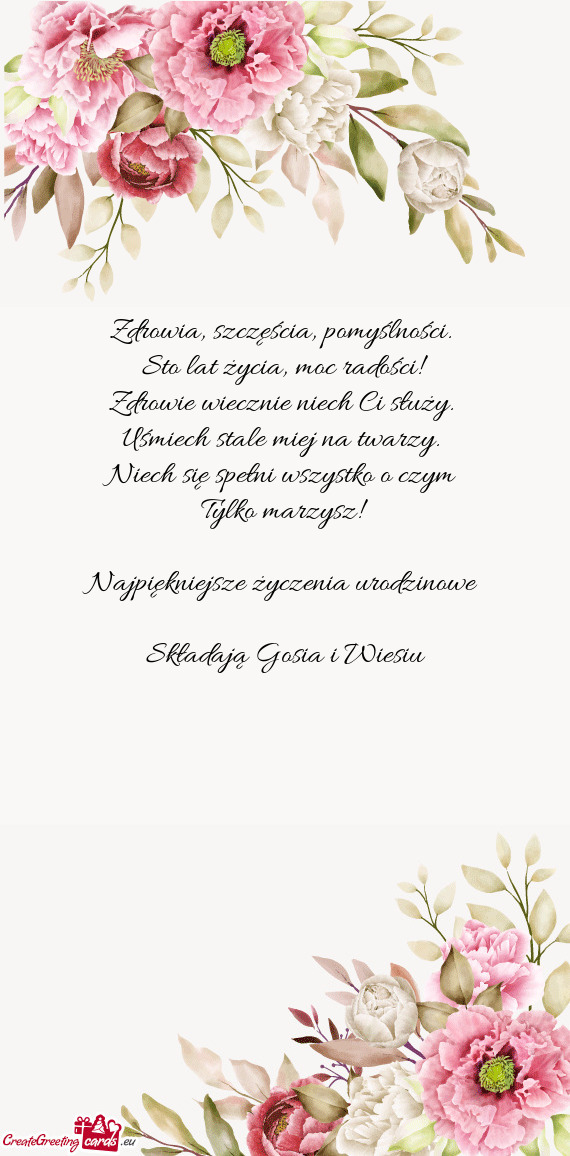 Zdrowia, szczęścia, pomyślności.
Sto lat życia, moc radości!
Zdrowie wiecznie niech Ci służy.
Uśmiech stale miej na twarzy.
Niech się spełni wszystko o czym
Tylko marzysz!
Najpiękniejsze życzenia urodzinowe
Składają Gosia i Wiesiu
CreateGreeting cards .eu